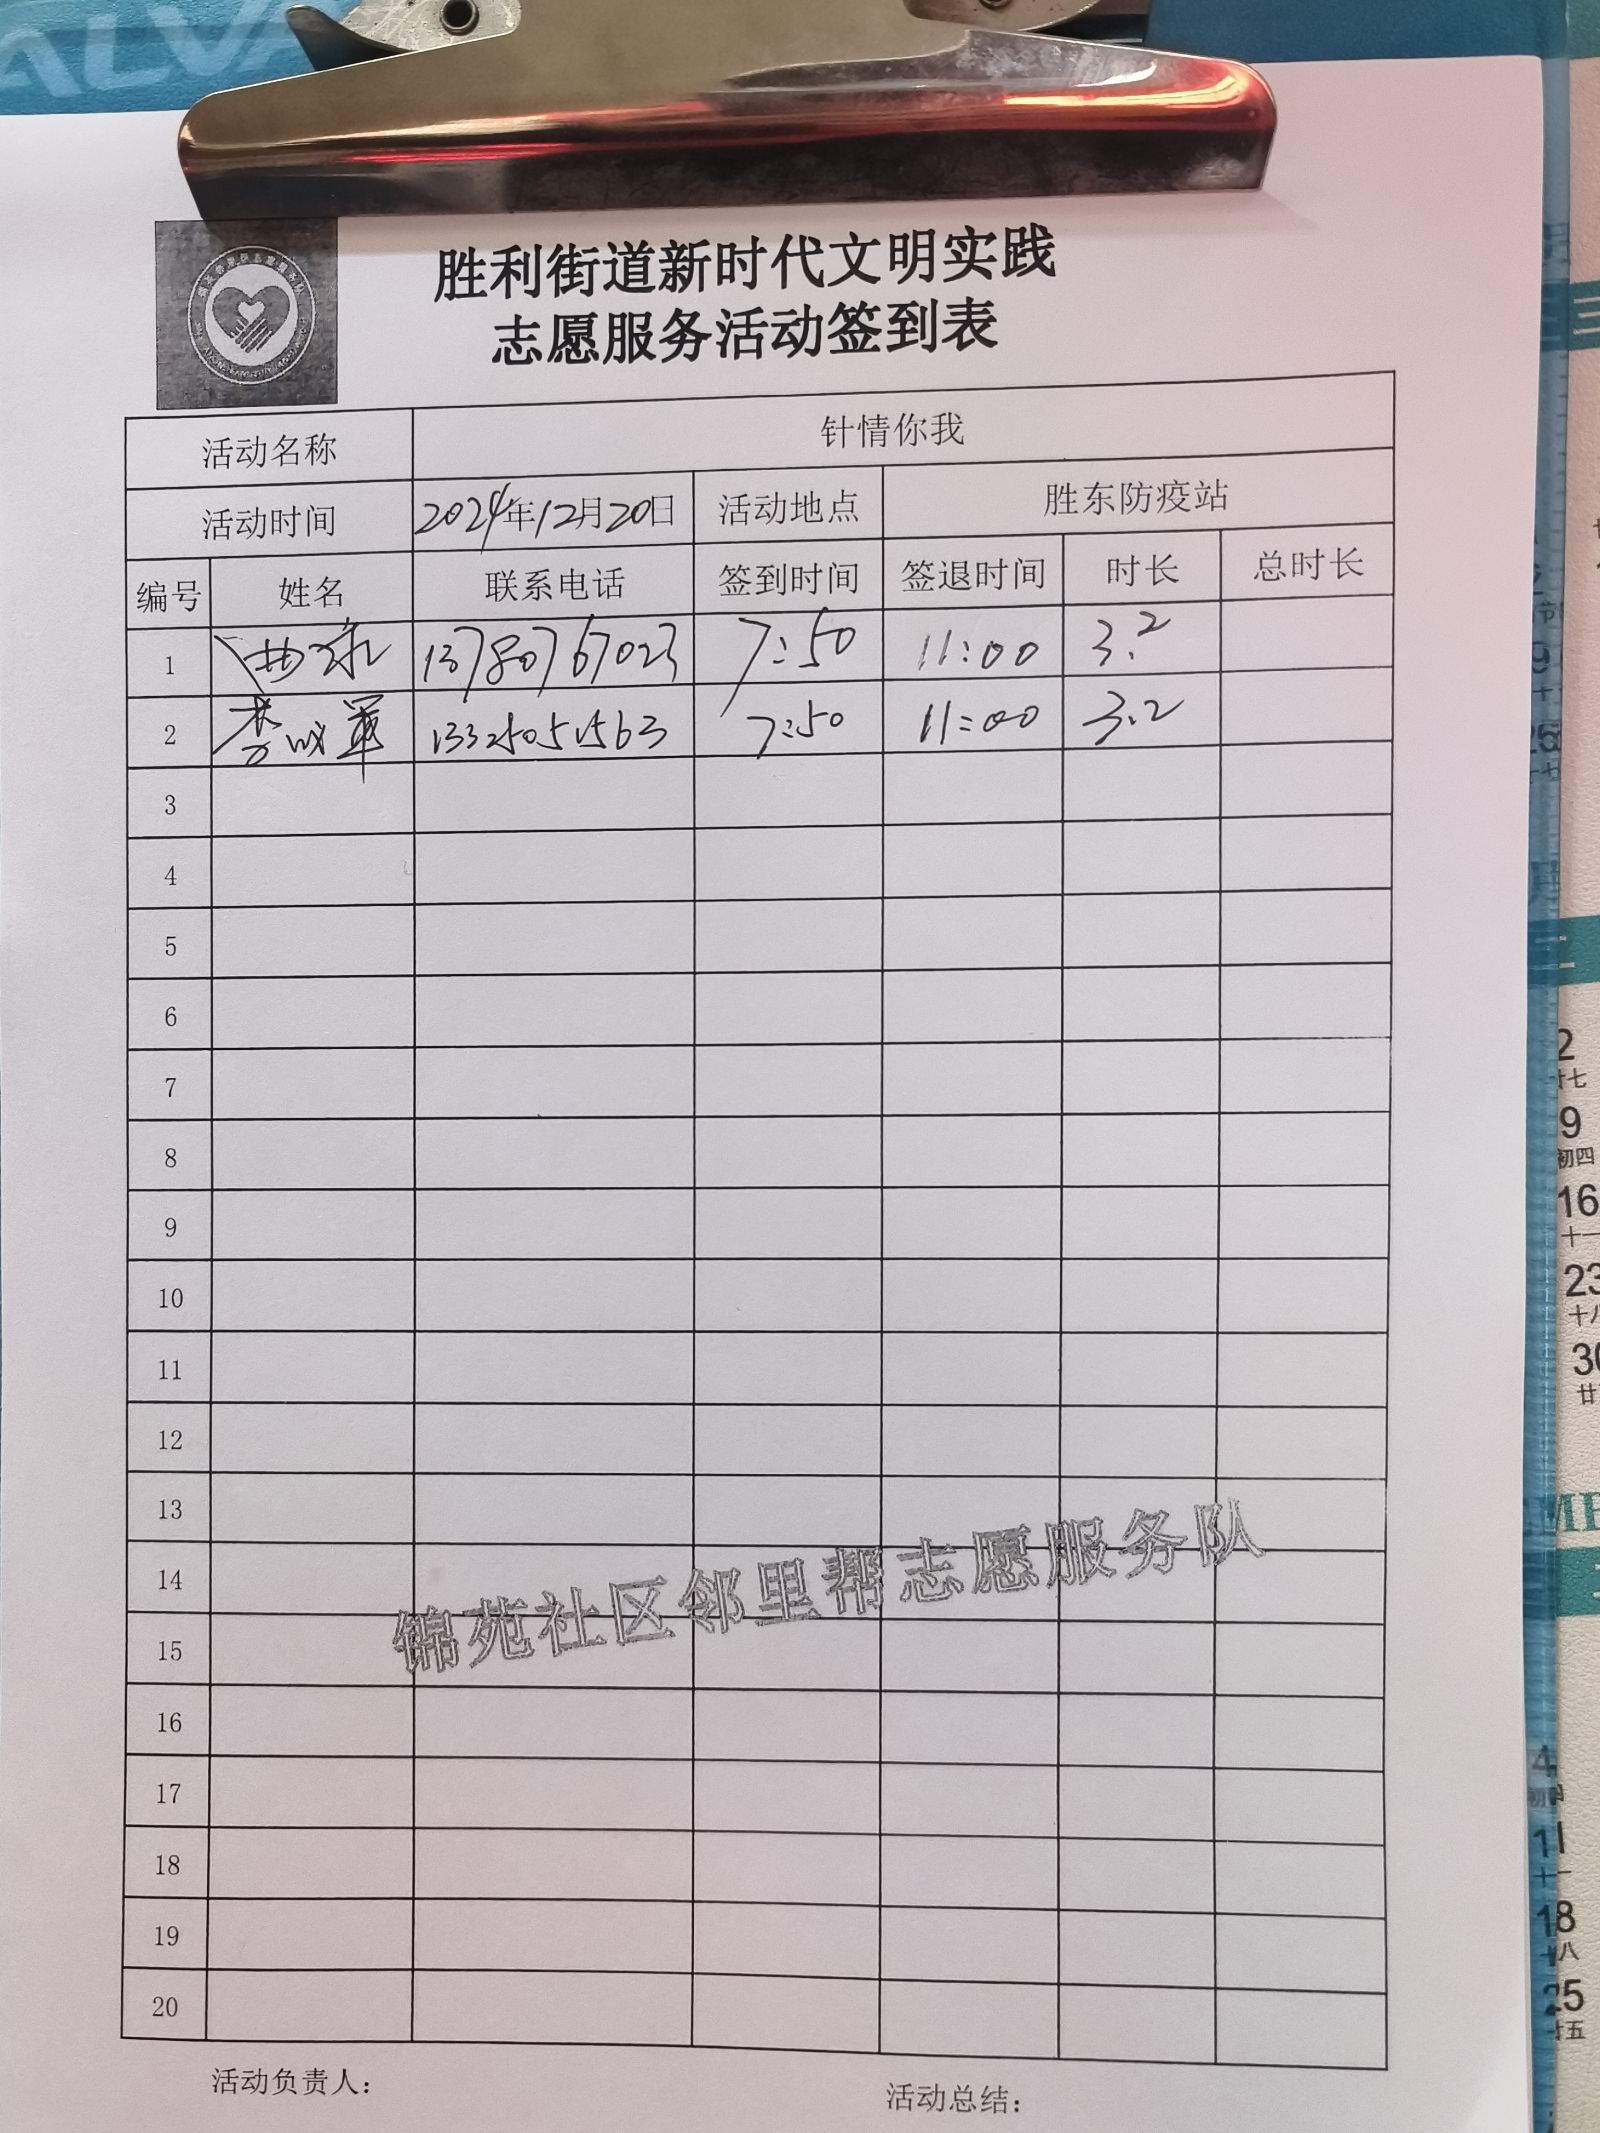 ALVA
胜利街道新时代文明实践
志愿服务活动签到表
活动名称 针情你我
活动时间 2024年12月20日 活动地点 胜东防疫站
编号 姓名 联系电话 签到时间 签退时间 时长 总时长
1 13780767023 7:50 11:00 3.2
2 李成军 13325051563 7:50 11:00 3.2
3
4
5
6
7
8
9
10
11
12
13
14
15
16
17
18
19
20
锦苑社区邻里帮志愿服务队
活动负责人：
活动总结：
三
2
廿七
9
初四
16
十一
23
十八
30
11
十一
18
十八
25
廿五